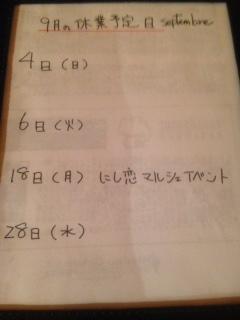 9月の休業予定日 septembre
4日(日)
6日(火)
18日(月) にし恋マルシェイベント
28日(水)